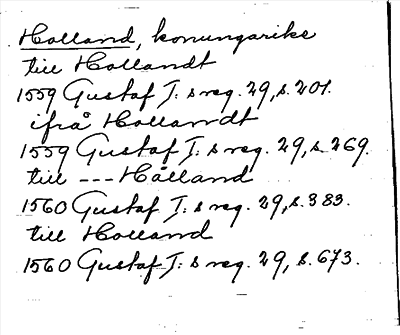 Holland, konungarike
till Hollandt
1559 Gustaf I: s reg. 29, s. 201.
ifrå Hollandt
1559 Gustaf I: s reg. 29, s. 269.
till --- Hålland
1560 Gustaf I: s reg. 29, s. 383.
till Holland
1560 Gustaf I: s reg. 29, s. 673.